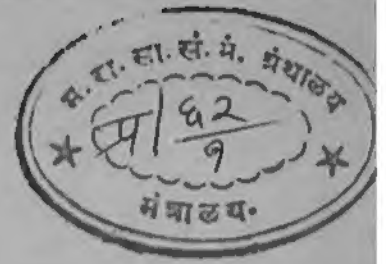 म. रा. सा. सं. मं. ग्रंथालय
प्र | ६२/१
मंत्रालय.